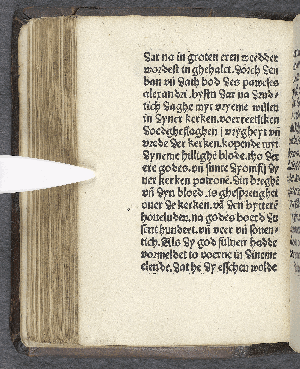 Dar na in groten eren wedder
wordest in ghehalet. dorch den
ban vñ dath bod des pawses
alexandri. bystu dar na dend-
lich daghe myt vryeme willen
in dyner kerken. vor
doedgheslaghen / vrygheyt vñ
vrede der kerken. kopende myt
dyneme hillighē blode. tho der
ere godes. vñ sunte dyonisii dy
ner kerken patrone. Din breghē
vñ dyn bloed. is ghesprenghet
ouer de kerken. vā den bytterē
houeluden. na godes boerd du
sent hundert. vñ veer vñ souen-
tich. Als dy god suluen hadde
vormeldet to voerne in dineme
elende. dat he dy esschen wolde